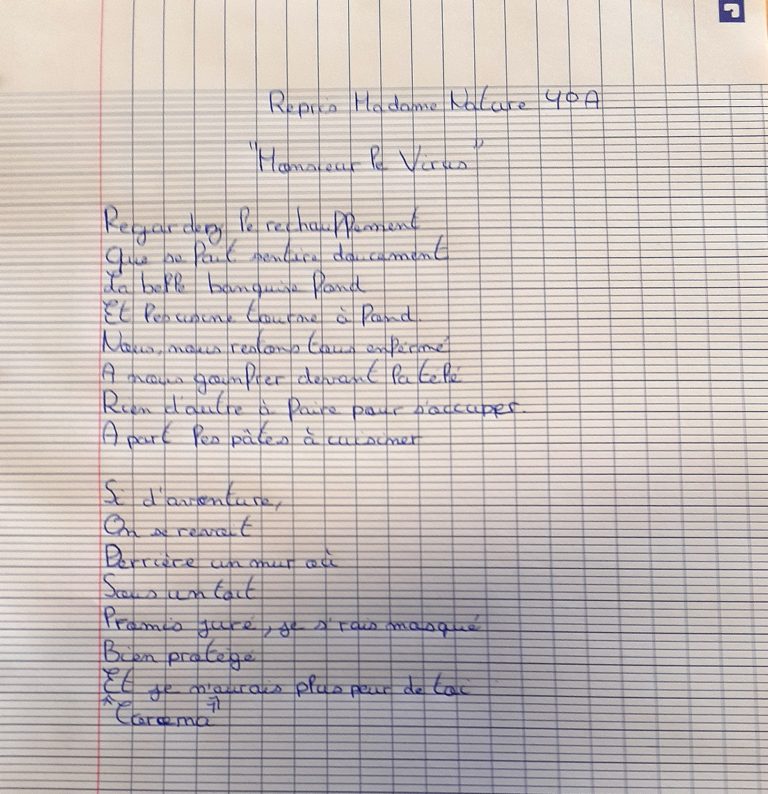 Repris Madame Nature 4°A
"Monsieur le Virus"
Regardez le rechauffement
Que se fait sentire doucement
La belle banquise fond
Et les usine tourne à fond.
Nous, nous restons tous enfermé
A nous gonfler devant la télé
Rien d'autre à faire pour s'occuper.
A part les pâtes à cuisiner
Si d'aventure,
On se revoit
Derrière un mur où
Sous un toit
Promis juré, je s'rais masqué
Bien protégé
Et je n'aurais plus peur de toi
"Corona"